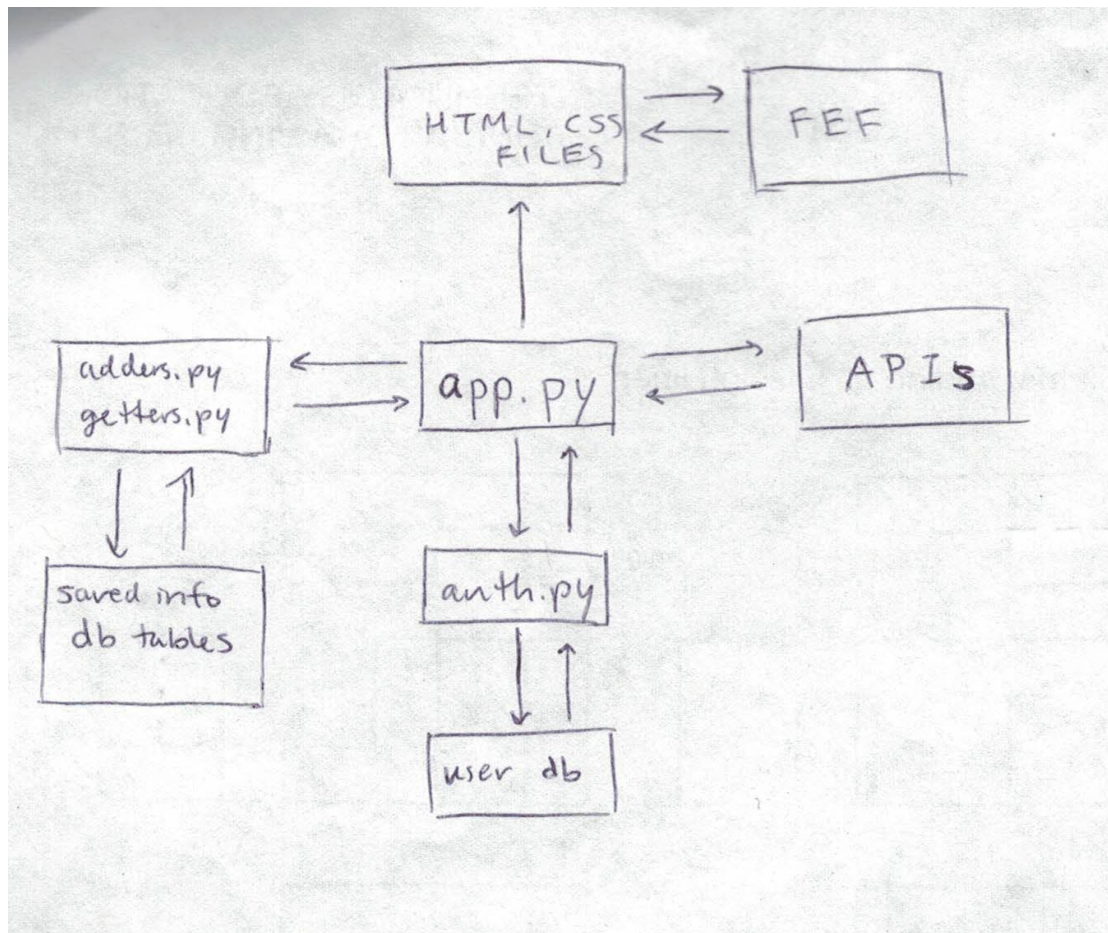 HTML, CSS
FILES
FEF
adders.py
getters.py
app.py
APIs
saved info
db tables
auth.py
user db